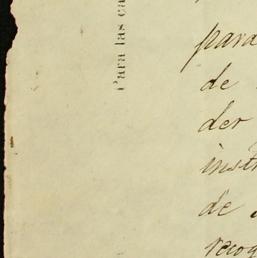 Para las ca
para
de
der
inst
de
recog